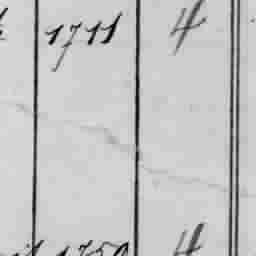 1711 4
1750 4